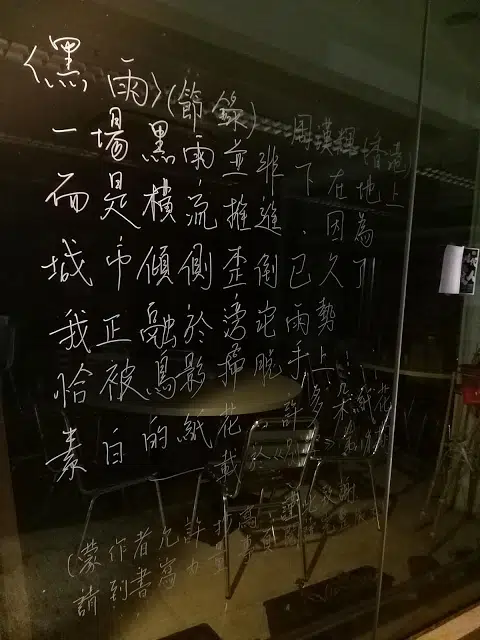 〈黑雨〉(節錄) 周漢輝(香港)
一場黑雨並非下在地上
而是橫流推進、因為
城市傾側歪倒已久了
我正融於滂沱雨勢
恰被鳥影掃脫手上
素白的紙花。許多朵紙花
載於
(蒙作者允許
請到書寫力量